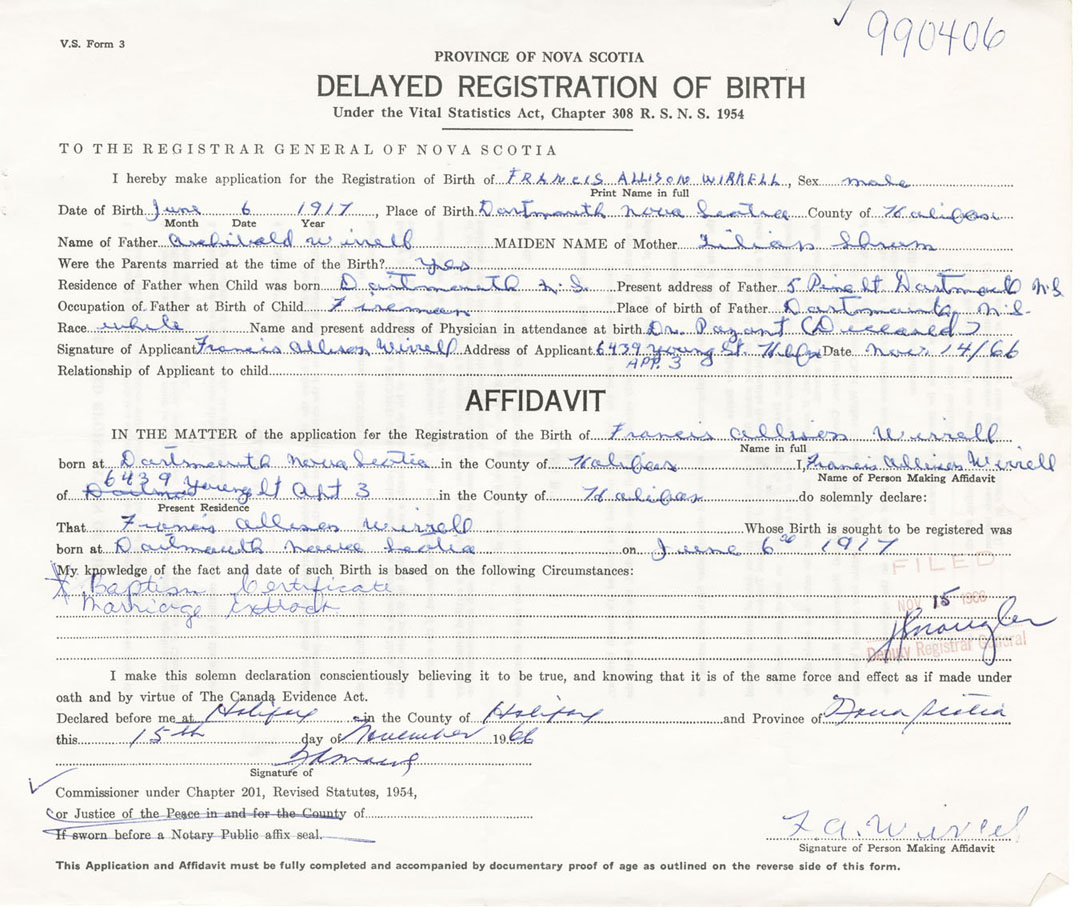 990406
V.S. Form 3
PROVINCE OF NOVA SCOTIA
DELAYED REGISTRATION OF BIRTH
Under the Vital Statistics Act, Chapter 308 R. S. N. S. 1954
TO THE REGISTRAR GENERAL OF NOVA SCOTIA
I hereby make application for the Registration of Birth of FRANCIS ALLISON WIRRELL, Sex male
Print Name in full
Date of Birth June 6 1917, Place of Birth Dartmouth Nova Scotia County of Halifax
Month Date Year
Name of Father Archibald Wirrell MAIDEN NAME of Mother Lilian Shrum
Were the Parents married at the time of the Birth? yes
Residence of Father when Child was born Dartmouth N.S. Present address of Father 5 Pine St Dartmouth N.S
Occupation of Father at Birth of Child Fireman Place of birth of Father Dartmouth, N.S.
Race white Name and present address of Physician in attendance at birth Dr. Pazant (Deceased)
Signature of Applicant Francis Allison Wirrell Address of Applicant 6439 Young St. Hlfx Date Nov. 14/66
APP. 3
Relationship of Applicant to child
AFFIDAVIT
IN THE MATTER of the application for the Registration of the Birth of Francis Allison Wirrell
Name in full
born at Dartmouth Nova Scotia in the County of Halifax I, Francis Allison Wirrell
Name of Person Making Affidavit
of 6439 Young St Apt 3 in the County of Halifax do solemnly declare:
Present Residence
That Francis Allison Wirrell Whose Birth is sought to be registered was
born at Dartmouth Nova Scotia on June 6 1917
My knowledge of the fact and date of such Birth is based on the following Circumstances:
X Baptism Certificate
Marriage extract
FILED
NOV 15 1966
Deputy Registrar General
I make this solemn declaration conscientiously believing it to be true, and knowing that it is of the same force and effect as if made under
oath and by virtue of The Canada Evidence Act.
Declared before me at Halifax in the County of Halifax and Province of Nova Scotia
this 15th day of November 1966
Signature of
Commissioner under Chapter 201, Revised Statutes, 1954,
or Justice of the Peace in and for the County of
If sworn before a Notary Public affix seal.
F. A. Wirrell
Signature of Person Making Affidavit
This Application and Affidavit must be fully completed and accompanied by documentary proof of age as outlined on the reverse side of this form.